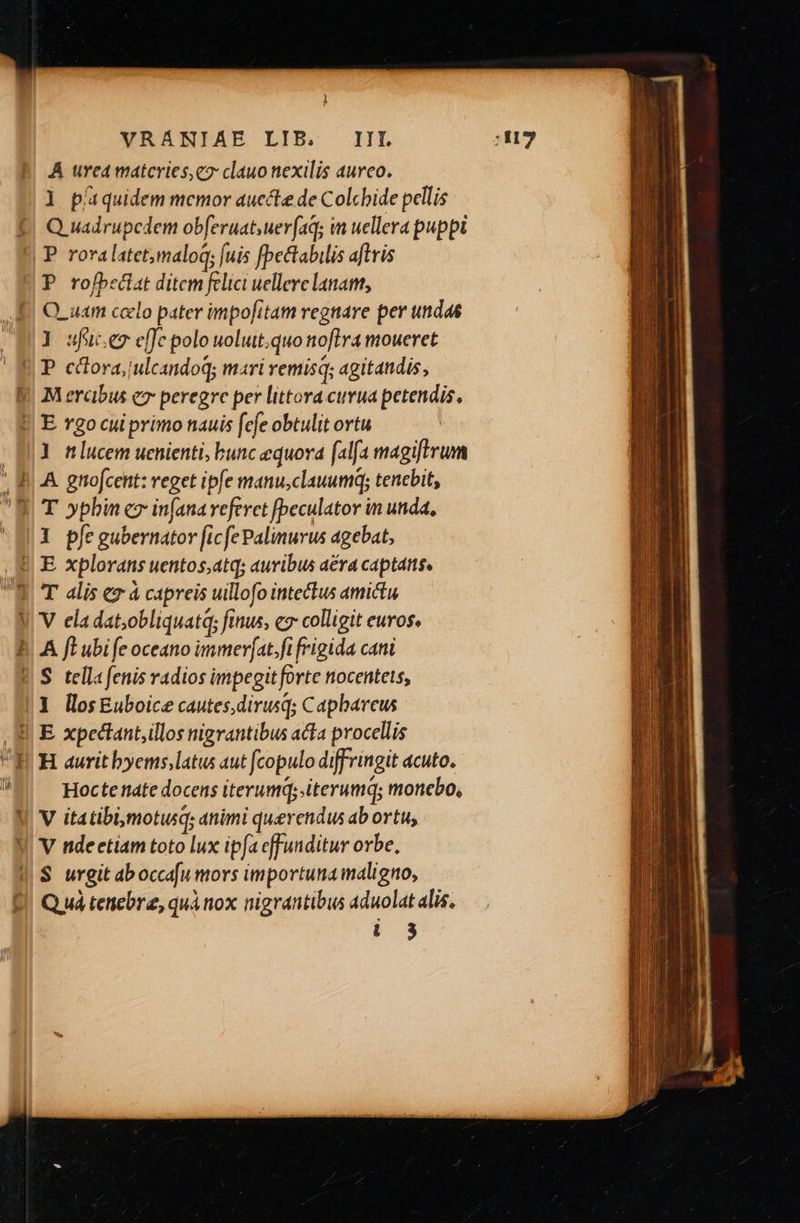 VRANIAE LIB. III. 117
A urea materies, & clauo nexilis aureo.
I pſa quidem memor auectæ de Colchide pellis
Q uadrupedem obſeruat, uerſaq; in uellera puppi
P rora latet, maloq; ſuis ſpectabilis aſtris
P roſpectat ditem felici uellere lanam,
Q uam cœlo pater impoſitam regnare per undas
I uſſit, & eſſe polo uoluit, quo noſtra moueret
P ectora, ſulcandoq; mari remisq; agitandis,
M ercibus & peregre per littora curua petendis.
E rgo cui primo nauis ſeſe obtulit ortu
I n lucem uenienti, hunc æquora ſalſa magiſtrum
A gnoſcent: reget ipſe manu, clauumq; tenebit,
T yphin & inſana referet ſpeculator in unda,
I pſe gubernator ſic ſe Palinurus agebat,
E xplorans uentos, atq; auribus aëra captans.
T alis & à capreis uilloſo intectus amictu
V ela dat, obliquatq; ſinus, & colligit euros.
A ſt ubi ſe oceano immerſat, ſi frigida cani
S tella ſenis radios impegit forte nocenteis,
I llos Euboicæ cautes, dirusq; Caphareus
E xpectant, illos nigrantibus acta procellis
H aurit hyems, latus aut ſcopulo diffringit acuto.
Hocte nate docens iterumq;, iterumq; monebo,
V ita tibi, motusq; animi quærendus ab ortu,
V nde etiam toto lux ipſa effunditur orbe,
S urgit ab occaſu mors importuna maligno,
Q uà tenebræ, quà nox nigrantibus aduolat alis.
i 3